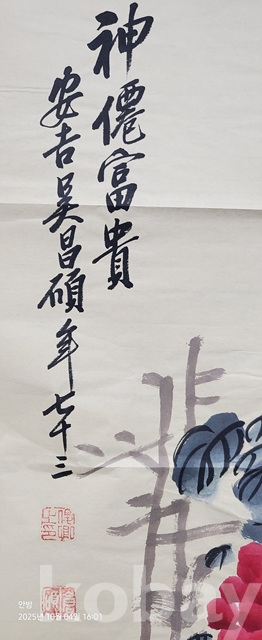 神僊富貴
安吉吳昌碩年七十三
俊卿之印
만방
2025년 10월 04일 16:01
kobay